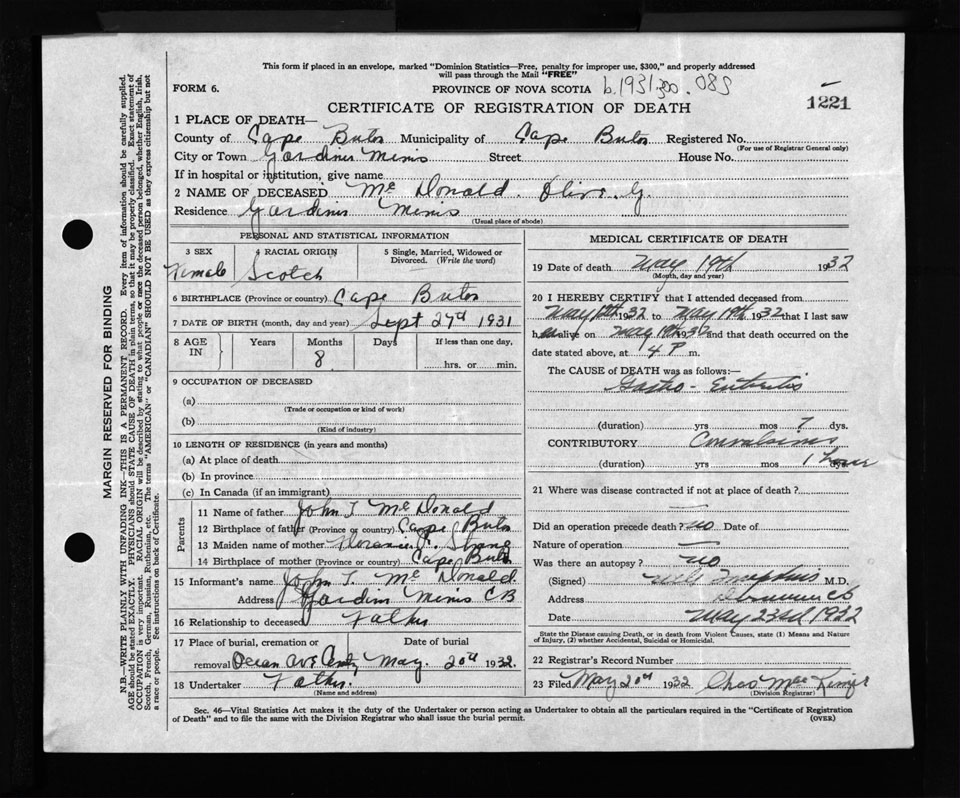 This form if placed in an envelope, marked "Dominion Statistics—Free, penalty for improper use, $300," and properly addressed
will pass through the Mail "FREE"
FORM 6. PROVINCE OF NOVA SCOTIA b.1931-300.
1221
CERTIFICATE OF REGISTRATION OF DEATH
1 PLACE OF DEATH—
County of Cape Municipality of Cape Registered No.
(For use of Registrar General only)
City or Town Street House No.
If in hospital or institution, give name
2 NAME OF DECEASED Mc Donald. G.
Residence
(Usual place of abode)
PERSONAL AND STATISTICAL INFORMATION
3 SEX 4 RACIAL ORIGIN 5 Single, Married, Widowed or
Divorced. (Write the word)
Female Scotch
6 BIRTHPLACE (Province or country) Cape
7 DATE OF BIRTH (month, day and year) Sept 1931
8 AGE IN Years Months Days If less than one day,
8 hrs. or min.
9 OCCUPATION OF DECEASED
(a)
(Trade or occupation or kind of work)
(b)
(Kind of industry)
10 LENGTH OF RESIDENCE (in years and months)
(a) At place of death
(b) In province
(c) In Canada (if an immigrant)
Parents
11 Name of father John Mc Donald
12 Birthplace of father (Province or country) Cape
13 Maiden name of mother
14 Birthplace of mother (Province or country) Cape
15 Informant's name John Mc Donald
Address CB
16 Relationship to deceased Father
17 Place of burial, cremation or Date of burial
removal Ocean Ave May. 20th 1932.
18 Undertaker Father
(Name and address)
MEDICAL CERTIFICATE OF DEATH
19 Date of death May 19th 1932
(Month, day and year)
20 I HEREBY CERTIFY that I attended deceased from
May 1932 to May 19th 1932 that I last saw
h alive on May 19th 1932 and that death occurred on
date stated above, at 4 P m.
The CAUSE of DEATH was as follows:—
Gastro-Enteritis
(duration) yrs mos 7 dys.
CONTRIBUTORY Convulsions
(duration) yrs mos 1 hour
21 Where was disease contracted if not at place of death?
Did an operation precede death? no Date of
Nature of operation —
Was there an autopsy? no
(Signed) M.D.
Address
Date May 23rd
State the Disease causing Death, or in death from Violent Causes, state (1) Means and Nature
of Injury, (2) whether Accidental, Suicidal or Homicidal.
22 Registrar's Record Number
23 Filed May 20th 1932 Chas
(Division Registrar)
Sec. 46—Vital Statistics Act makes it the duty of the Undertaker or person acting as Undertaker to obtain all the particulars required in the "Certificate of Registration
of Death" and to file the same with the Division Registrar who shall issue the burial permit. (OVER)
MARGIN RESERVED FOR BINDING
N.B.—WRITE PLAINLY WITH UNFADING INK—THIS IS A PERMANENT RECORD. Every item of information should be carefully supplied.
AGE should be stated EXACTLY. PHYSICIANS should STATE CAUSE OF DEATH in plain terms, so that it may be properly classified. Exact statement of
OCCUPATION is very important. RACIAL ORIGIN will be described by stating to what people or race the deceased person belonged, whether English, Irish,
Scotch, French, German, Russian, Ruthenian, etc. The terms "AMERICAN" or "CANADIAN" SHOULD NOT BE USED as they express citizenship but not
a race or people. See instructions on back of Certificate.